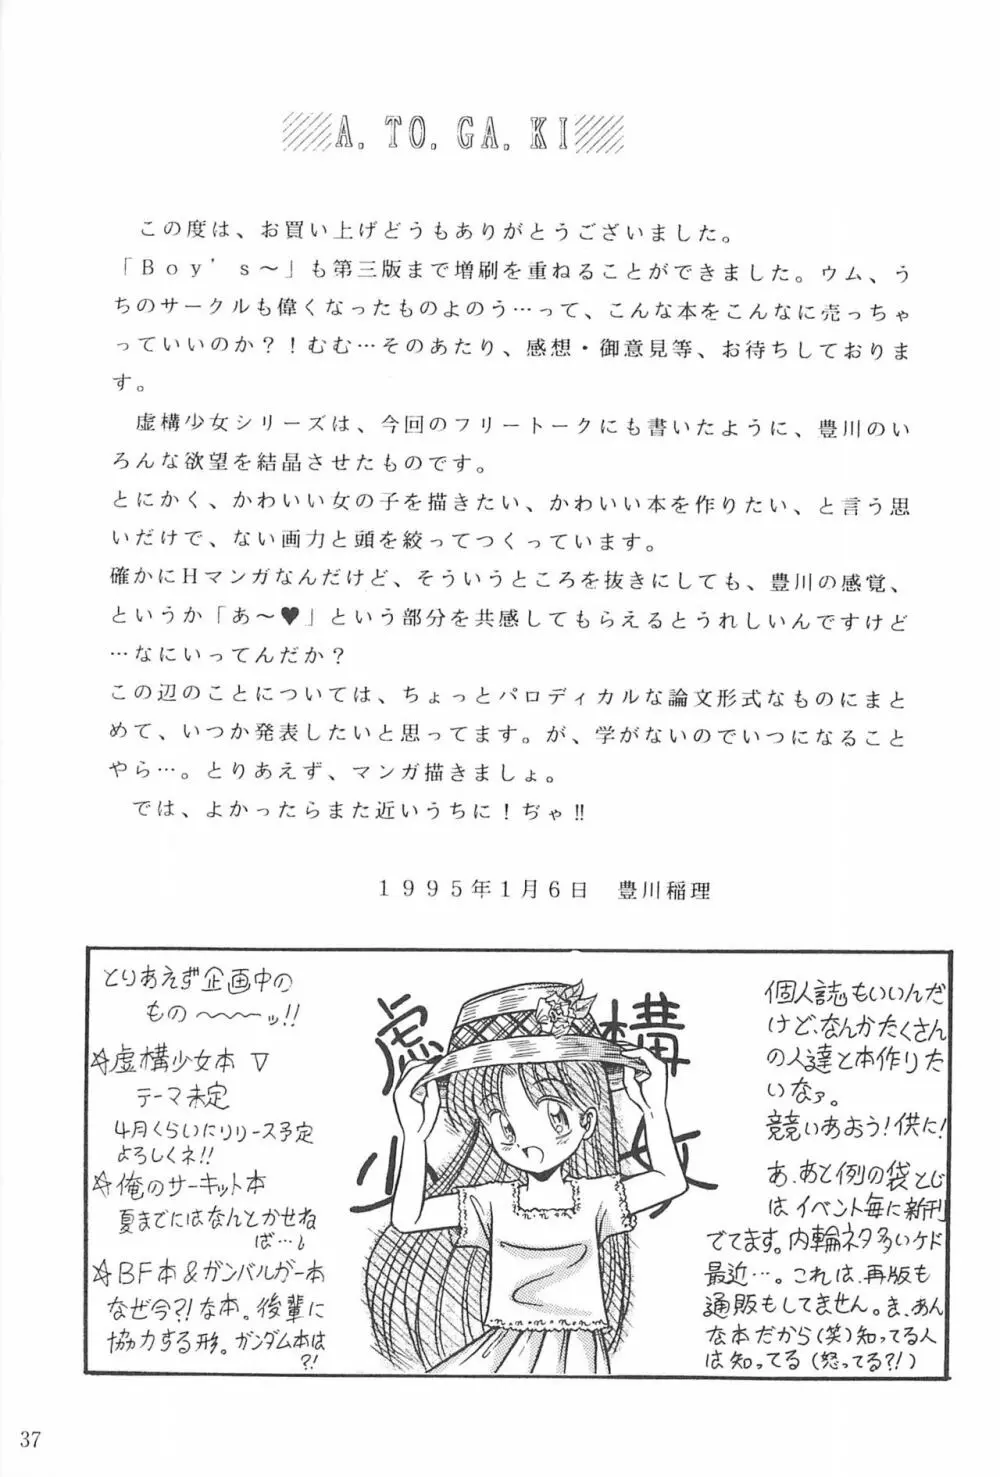 A. TO. GA. KI
この度は、お買い上げどうもありがとうございました。
「Boy's～」も第三版まで増刷を重ねることができました。ウム、う
ちのサークルも偉くなったものよのう…って、こんな本をこんなに売っちゃ
っていいのか？！むむ…そのあたり、感想・御意見等、お待ちしておりま
す。
虚構少女シリーズは、今回のフリートークにも書いたように、豊川のい
ろんな欲望を結晶させたものです。
とにかく、かわいい女の子を描きたい、かわいい本を作りたい、と言う思
いだけで、ない画力と頭を絞ってつくっています。
確かにHマンガなんだけど、そういうところを抜きにしても、豊川の感覚、
というか「あ～♥」という部分を共感してもらえるとうれしいんですけど
…なにいってんだか？
この辺のことについては、ちょっとパロディカルな論文形式なものにまと
めて、いつか発表したいと思ってます。が、学がないのでいつになること
やら…。とりあえず、マンガ描きましょ。
では、よかったらまた近いうちに！ぢゃ‼
1995年1月6日　豊川稲理
とりあえず企画中の
もの～～～ッ!!
☆虚構少女本 Ⅴ
テーマ未定
4月くらいにリリース予定
よろしくネ!!
☆俺のサーキット本
夏までにはなんとかせね
ば…。
☆BF本&ガンバルガー本
なぜ今?!な本。後輩に
協力する形。ガンダム本は
?!
虚構
少女
個人誌もいいんだ
けど、なんかたくさん
の人達と本作りた
いなァ。
競いあおう!供に!
あ、あと例の袋とじ
はイベント毎に新刊
でてます。内輪ネタ多いケド
最近…。これは、再版も
通販もしてません。ま、あん
な本だから(笑)知ってる人
は知ってる(怒ってる?!)
37